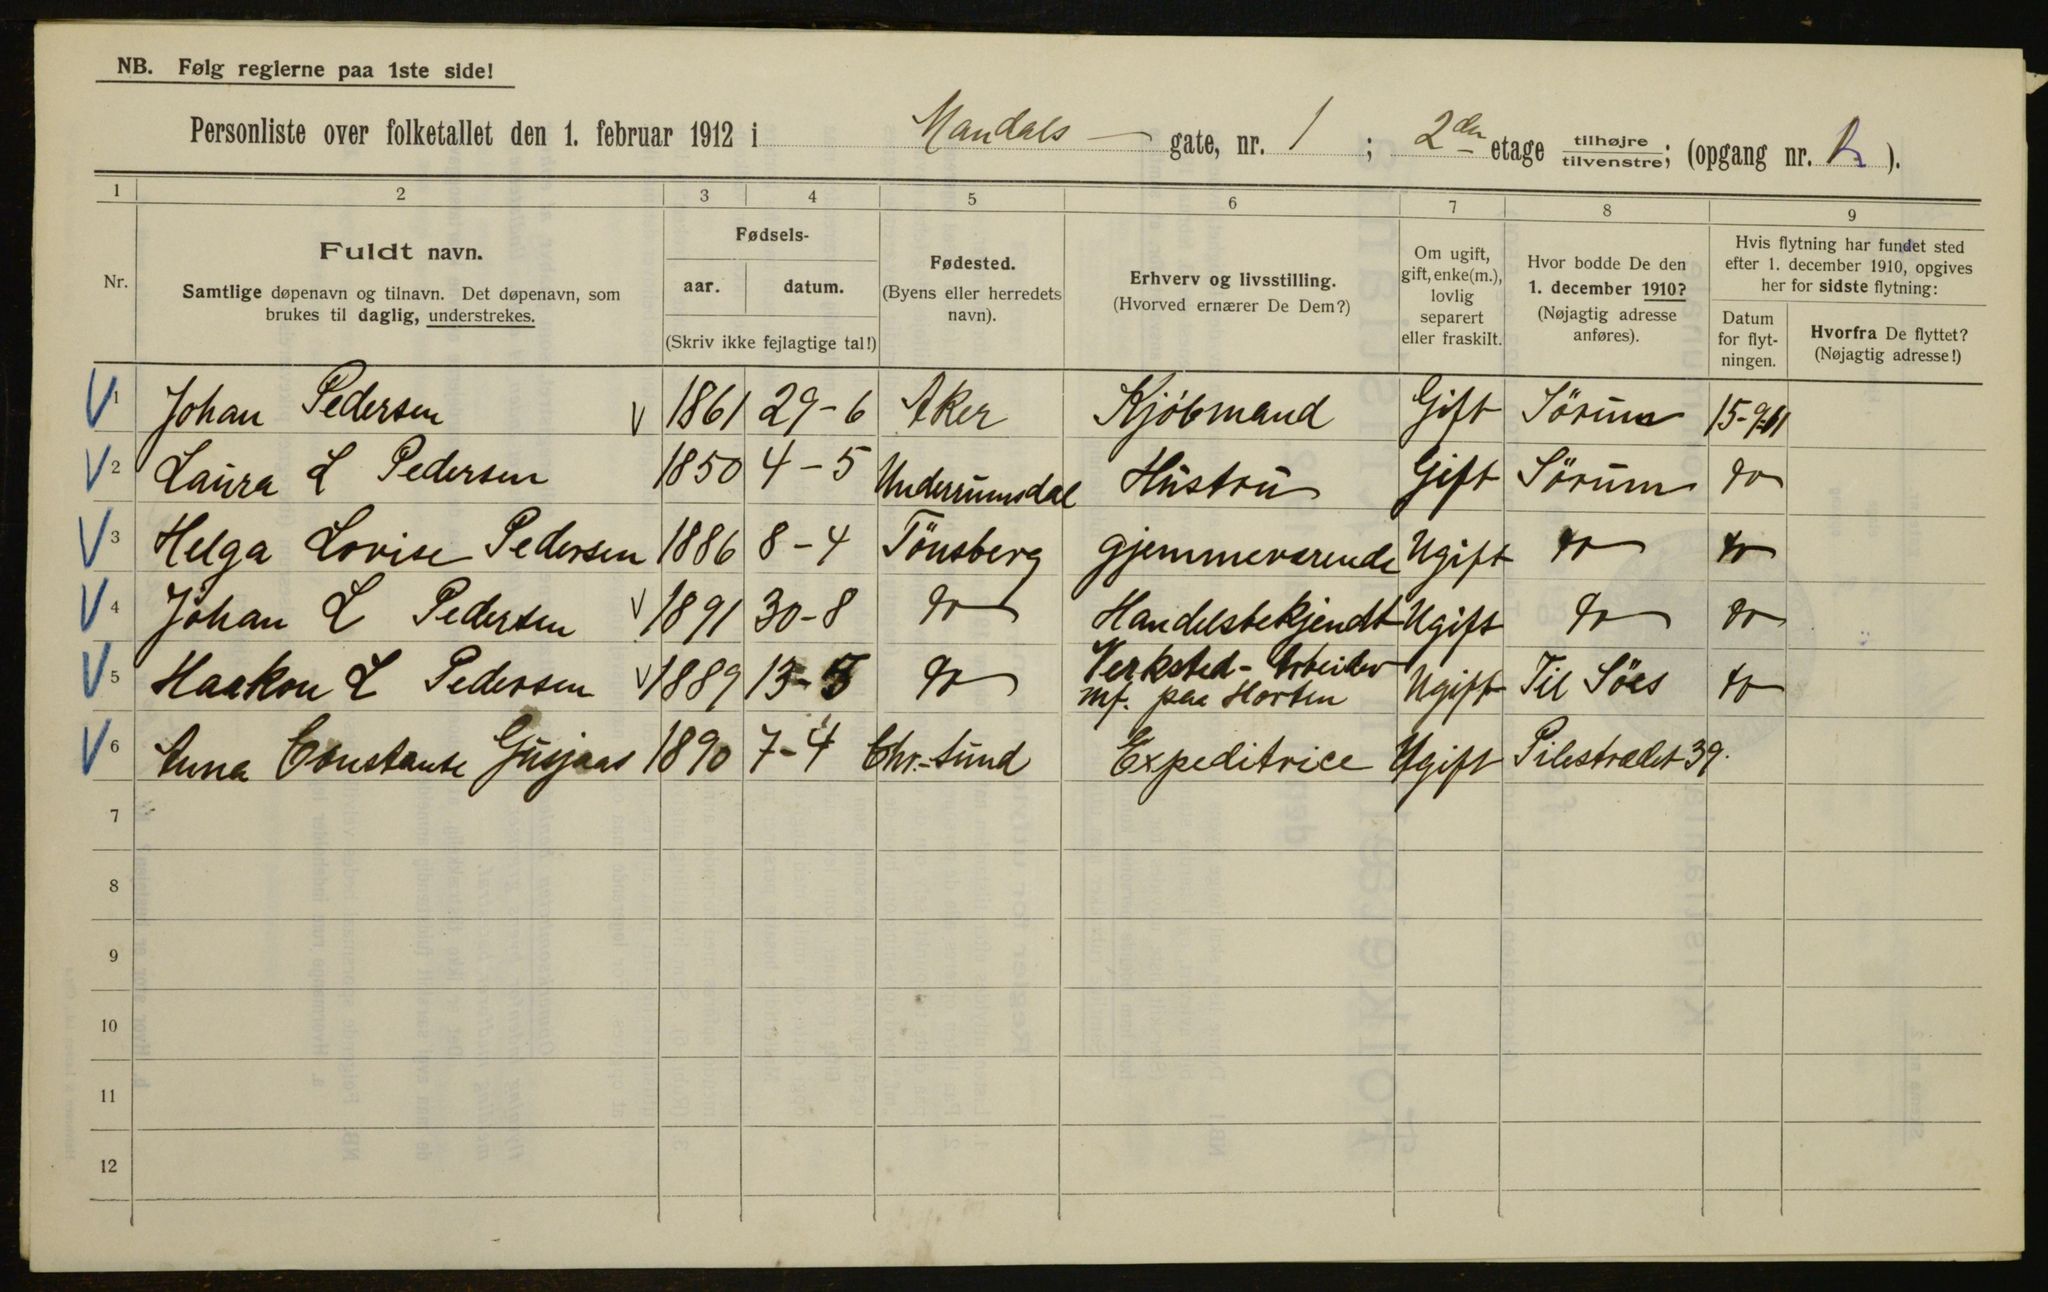 NB. Følg reglerne paa 1ste side!
Personliste over folketallet den 1. februar 1912 i Mandals gate, nr. 1 ; 2den etage tilhøjre/tilvenstre; (opgang nr. ).
1 2 3 4 5 6 7 8 9
Nr.
Fuldt navn.
Samtlige døpenavn og tilnavn. Det døpenavn, som
brukes til daglig, understrekes.
Fødsels-
aar. datum.
(Skriv ikke fejlagtige tal!)
Fødested.
(Byens eller herredets
navn).
Erhverv og livsstilling.
(Hvorved ernærer De Dem?)
Om ugift,
gift, enke(m.),
lovlig
separert
eller fraskilt.
Hvor bodde De den
1. december 1910?
(Nøjagtig adresse
anføres).
Hvis flytning har fundet sted
efter 1. december 1910, opgives
her for sidste flytning:
Datum
for flyt-
ningen.
Hvorfra De flyttet?
(Nøjagtig adresse!)
V 1 Johan Pedersen V 1861 29-6 Aker Kjøbmand Gift Sörum 15-9-11
V 2 Laura L Pedersen 1850 4-5 Underrumsdal Hustru Gift Sörum do
V 3 Helga Lovise Pedersen 1886 8-4 Tönsberg gjemmeværende Ugift do do
V 4 Johan L Pedersen V 1891 30-8 do Handelsbekjendt Ugift do do
V 5 Haakon L Pedersen V 1889 13-5 do Verksted-Arbeider
mf. paa Horten Ugift Til Söes do
V 6 Anna Constanse Gusjaas 1890 7-4 Chr.-sund Expeditrice Ugift Pilestrædet 39.
7
8
9
10
11
12